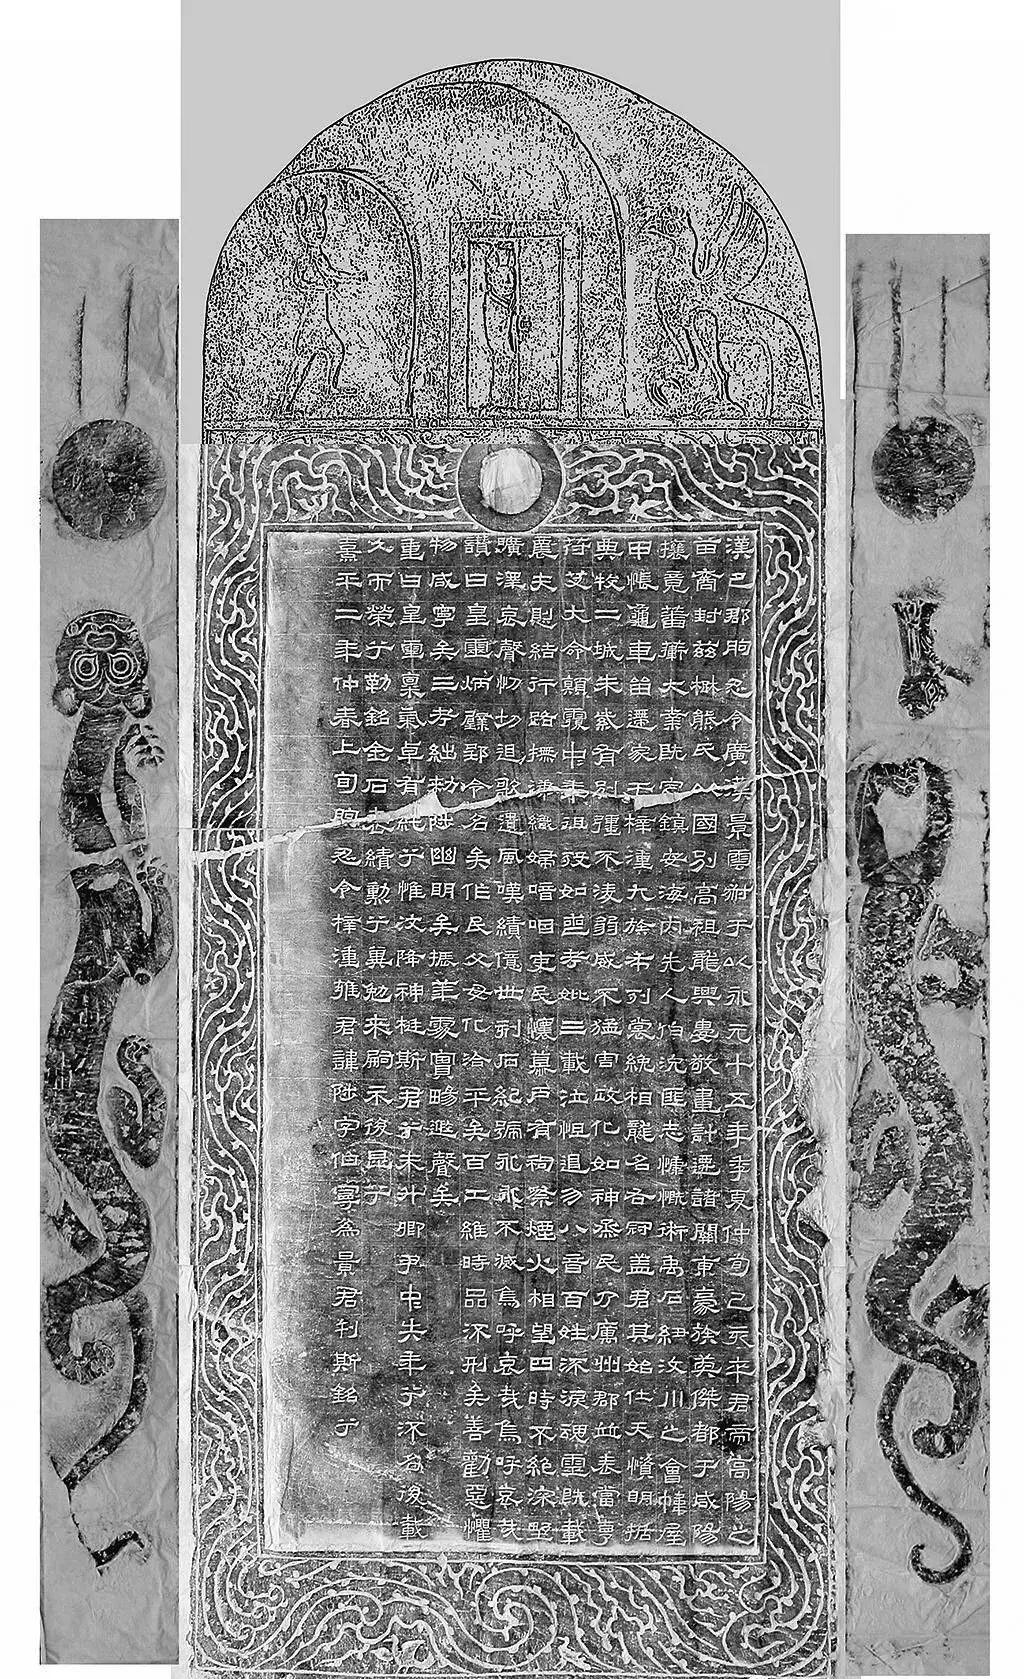 漢巴郡朐忍令廣漢景雲叔于以永元十五年季夏仲旬己亥卒君帝高陽之
苗裔封兹楙熊氏以國別高祖龍興婁敬畫計遷諸關東豪族英傑都于咸陽
攘竟蕃㢘大業既定鎮安海內先人伯沇匪志慷慨術禹石紐汶川之會幃屋
甲帳龜車留遷家于梓湩九族布列裳絻相龍名右冠盖君其始仕天資明括
典牧二城朱紫有別彊不凌弱威不猛害政化如神烝民乃厲州郡並表當亨
苻艾大命顛覆中年徂歿如喪考妣三載泣怛退勿八音百姓流淚魂靈既載
農夫恻結行路撫涕織婦喑咽吏民懷慕戶有祠祭煙火相望四時不絕深野
曠澤哀聲忉切追歌遺風嘆績億世刻石紀號永永不滅烏呼哀哉烏呼哀哉
讚曰皇靈炳璧郢令名矣作民父母化洽平矣百工維時品流刑矣善勸惡懼
物咸寧矣三考絀敕陟幽明矣振華處實暘遐聲矣
重曰皇靈稟氣卓有純兮惟汶降神梃斯君兮未升卿尹中失年兮流名後載
久而榮兮勒銘金石表績勳兮冀勉來嗣示後昆兮
熹平二年仲春上旬朐忍令梓湩雍君諱陟字伯寧為景君刊斯銘兮